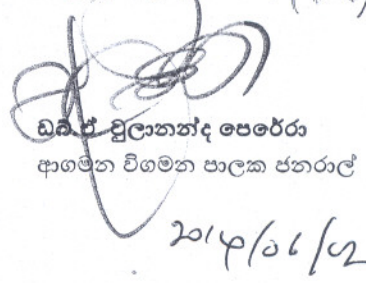 ඩබ්.ඒ. චූලානන්ද පෙරේරා
ආගමන විගමන පාලක ජනරාල්
2014/06/02